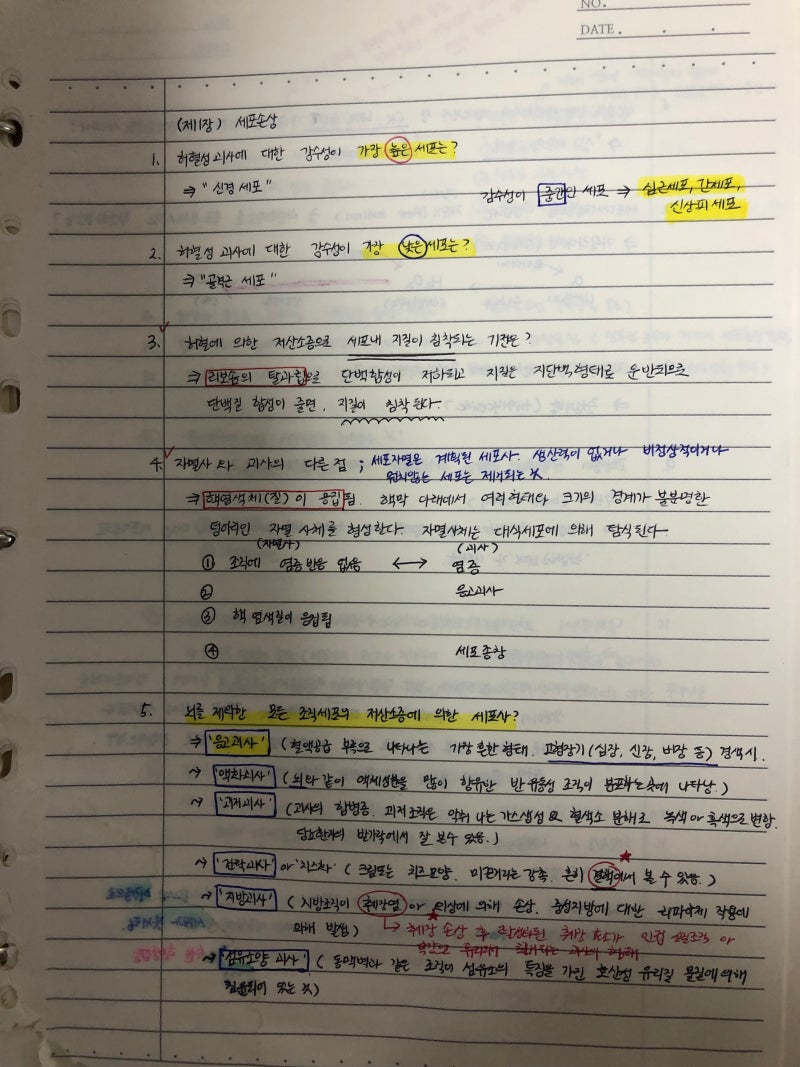 NO.
DATE . . .
(제1장) 세포손상
1. 허혈성 괴사에 대한 감수성이 가장 높은 세포는?
⇒ "신경 세포" 감수성이 중간인 세포 ⇒ 심근세포, 간세포,
신상피 세포
2. 허혈성 괴사에 대한 감수성이 가장 낮은 세포는?
⇒ "골격근 세포"
3. 허혈에 의한 저산소증으로 세포내 지질이 침착되는 기전은?
⇒ 리보솜의 탈과립으로 단백합성이 저하되고 지질은 지단백형태로 운반되므로
단백질 합성이 줄면, 지질이 침착된다.
4. 자멸사 와 괴사의 다른 점 ; 세포자멸은 계획된 세포사. 생산력이 없거나 비정상적이거나
원치않는 세포는 제거되는 것.
⇒ 핵염색체(질)이 응집됨. 핵막 아래에서 여러형태와 크기의 경계가 불분명한
덩어리인 자멸 사체를 형성한다. 자멸사체는 대식세포에 의해 탐식된다
(자멸사) (괴사)
① 조직에 염증반응 없음 ↔ 염증
② 응고괴사
③ 핵 염색질이 응집됨
④ 세포종창
5. 뇌를 제외한 모든 조직세포의 저산소증에 의한 세포사?
⇒ '응고괴사' (혈액공급 부족으로 나타나는 가장 흔한 형태. 고형장기(심장, 신장, 비장 등) 경색시.
'액화괴사' (뇌와 같이 액체성분을 많이 함유한 반유동성 조직이 분포하는곳에 나타남.)
'괴저괴사' (괴사의 합병증. 괴저조직은 악취 나는 가스생성 & 혈색소 분해로 녹색 or 흑색으로 변함.
당뇨환자의 발가락에서 잘 볼수 있음.)
'건락괴사' or '치즈화' (크림또는 치즈모양. 미끈거리는 감촉. 흔히 결핵에서 볼 수 있음.)
'지방괴사' (지방조직이 췌장염 or 외상에 의해 손상. 중성지방에 대한 리파아제 작용에
의해 발생) 췌장 손상 후 활성화된 췌장 효소가 인접 or
'섬유소양 괴사' (동맥벽과 같은 조직이 섬유소의 특징을 가진 호산성 유리질 물질에 의해
침윤되어 있는 것)